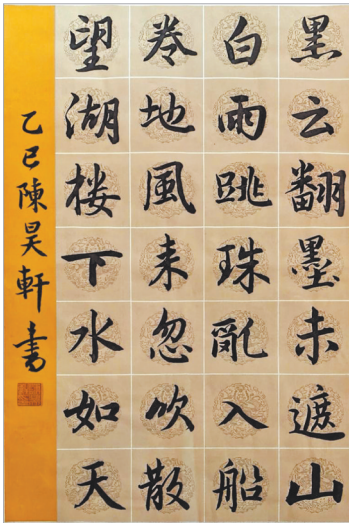 黑云翻墨未遮山
白雨跳珠亂入船
卷地風来忽吹散
望湖楼下水如天
乙巳陳昊軒書